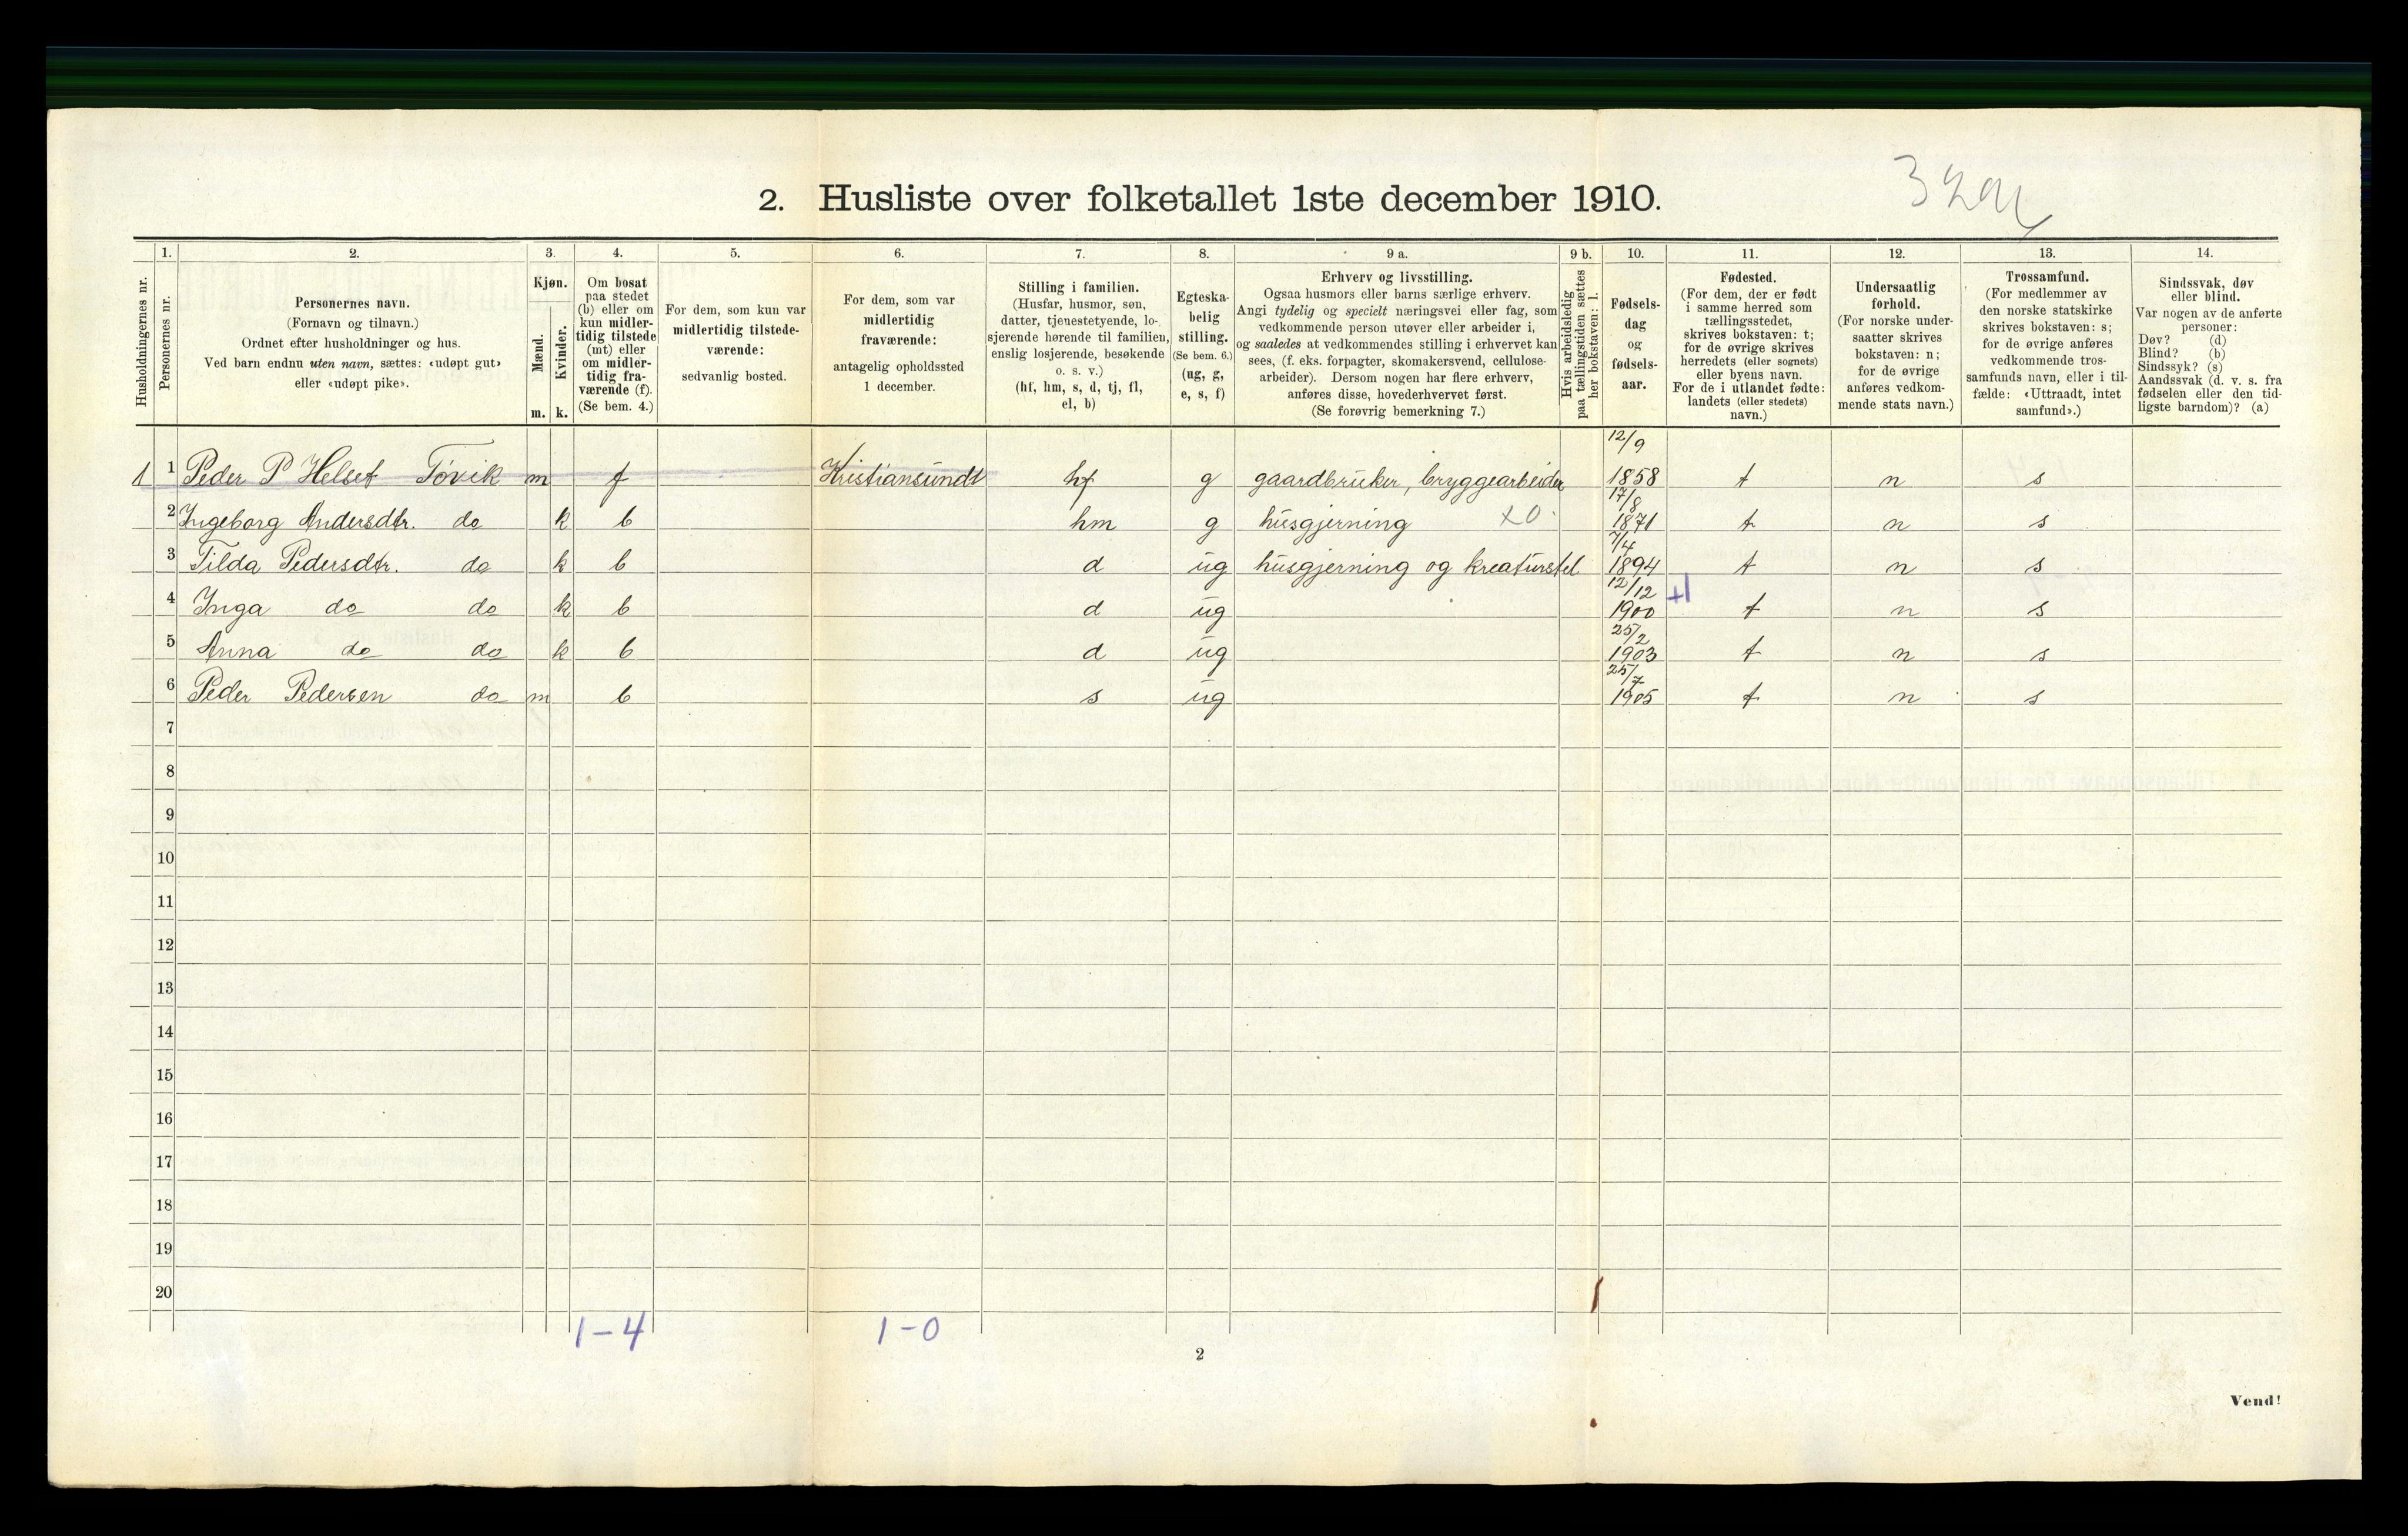 2. Husliste over folketallet 1ste december 1910.
Husholdningernes nr.
1. Personernes nr.
2. Personernes navn.
(Fornavn og tilnavn.)
Ordnet efter husholdninger og hus.
Ved barn endnu uten navn, sættes: «udøpt gut»
eller «udøpt pike».
3. Kjøn.
Mænd. m.
Kvinder. k.
4. Om bosat
paa stedet
(b) eller om
kun midler-
tidig tilstede
(mt) eller
om midler-
tidig fra-
værende (f).
(Se bem. 4.)
5. For dem, som kun var
midlertidig tilstede-
værende:
sedvanlig bosted.
6. For dem, som var
midlertidig
fraværende:
antagelig opholdssted
1 december.
7. Stilling i familien.
(Husfar, husmor, søn,
datter, tjenestetyende, lo-
sjerende hørende til familien,
enslig losjerende, besøkende
o. s. v.)
(hf, hm, s, d, tj, fl,
el, b)
8. Egteska-
belig
stilling.
(Se bem. 6.)
(ug, g,
e, s, f)
9 a. Erhverv og livsstilling.
Ogsaa husmors eller barns særlige erhverv.
Angi tydelig og specielt næringsvei eller fag, som
vedkommende person utøver eller arbeider i,
og saaledes at vedkommendes stilling i erhvervet kan
sees, (f. eks. forpagter, skomakersvend, cellulose-
arbeider). Dersom nogen har flere erhverv,
anføres disse, hovederhvervet først.
(Se forøvrig bemerkning 7.)
9 b. Hvis arbeidsledig
paa tællingstiden sættes
her bokstaven: l.
10. Fødsels-
dag
og
fødsels-
aar.
11. Fødested.
(For dem, der er født
i samme herred som
tællingsstedet,
skrives bokstaven: t;
for de øvrige skrives
herredets (eller sognets)
eller byens navn.
For de i utlandet fødte:
landets (eller stedets)
navn.)
12. Undersaatlig
forhold.
(For norske under-
saatter skrives
bokstaven: n;
for de øvrige
anføres vedkom-
mende stats navn.)
13. Trossamfund.
(For medlemmer av
den norske statskirke
skrives bokstaven: s;
for de øvrige anføres
vedkommende tros-
samfunds navn, eller i til-
fælde: «Uttraadt, intet
samfund».)
14. Sindssvak, døv
eller blind.
Var nogen av de anførte
personer:
Døv? (d)
Blind? (b)
Sindssyk? (s)
Aandssvak (d. v. s. fra
fødselen eller den tid-
ligste barndom)? (a)
1 1 Peder P Helset Tøvik m f Kristiansundt hf g gaardbruker, bryggearbeider 12/9 1858 t n s
2 Ingeborg Andersdtr. do k b hm g husgjerning x0 17/8 1871 t n s
3 Tilda Pedersdtr. do k b d ug husgjerning og kreaturstel 7/4 1894 t n s
4 Inga do do k b d ug 12/12 1900 +1 t n s
5 Anna do do k b d ug 25/2 1903 t n s
6 Peder Pedersen do m b s ug 25/7 1905 t n s
7
8
9
10
11
12
13
14
15
16
17
18
19
20
1-4 1-0
2
Vend!